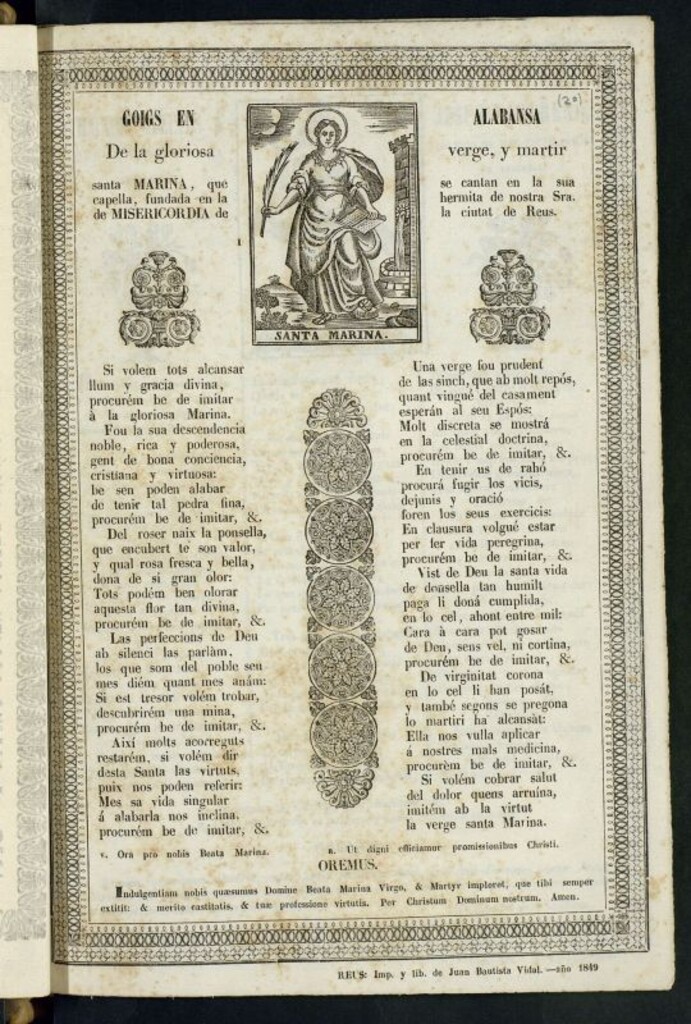 (20)
GOIGS EN ALABANSA
De la gloriosa verge, y martir
santa MARINA, que se cantan en la sua
capella, fundada en la hermita de nostra Sra.
de MISERICORDIA de la ciutat de Reus.
SANTA MARINA.
Si volem tots alcansar
llum y gracia divina,
procurém be de imitar
à la gloriosa Marina.
Fou la sua descendencia
noble, rica y poderosa,
gent de bona conciencia,
cristiana y virtuosa:
be sen poden alabar
de tenir tal pedra fina,
procurém be de imitar, &.
Del roser naix la ponsella,
que encubert te son valor,
y qual rosa fresca y bella,
dona de si gran olor:
Tots podém ben olorar
aquesta flor tan divina,
procurém be de imitar, &.
Las perfeccions de Deu
ab silenci las parlàm,
los que som del poble seu
mes diém quant mes anám:
Si est tresor volém trobar,
descubrirém una mina,
procurém be de imitar, &.
Així molts acorreguts
restarém, si volém dir
desta Santa las virtuts,
puix nos poden referir:
Mes sa vida singular
á alabarla nos inclina,
procurém be de imitar, &.
Una verge fou prudent
de las sinch, que ab molt repós,
quant vingué del casament
esperán al seu Espós:
Molt discreta se mostrá
en la celestial doctrina,
procurém be de imitar, &.
En tenir us de rahó
procurá fugir los vicis,
dejunis y oració
foren los seus exercicis:
En clausura volgué estar
per fer vida peregrina,
procurém be de imitar, &.
Vist de Deu la santa vida
de donsella tan humilt
paga li doná cumplida,
en lo cel, ahont entre mil:
Cara à cara pot gosar
de Deu, sens vel, ni cortina,
procurém be de imitar, &.
De virginitat corona
en lo cel li han posát,
y també segons se pregona
lo martiri ha alcansàt:
Ella nos vulla aplicar
á nostres mals medicina,
procurèm be de imitar, &.
Si volém cobrar salut
del dolor quens arruína,
imitém ab la virtut
la verge santa Marina.
v. Ora pro nobis Beata Marina.
R. Ut digni efficiamur promissionibus Christi.
OREMUS.
Indulgentiam nobis quæsumus Domine Beata Marina Virgo, & Martyr imploret, que tibi semper
extitit: & merito castitatis, & tuæ professione virtutis. Per Christum Dominum nostrum. Amen.
REUS: Imp. y lib. de Juan Bautista Vidal.—año 1849